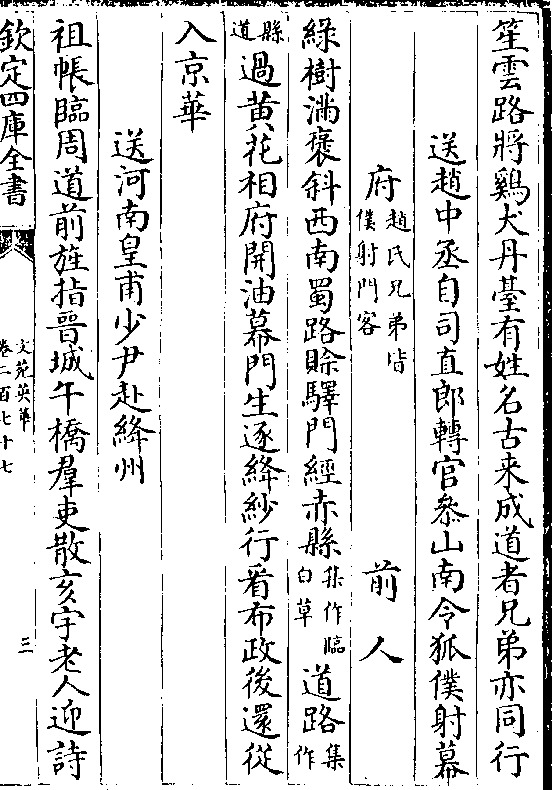 笙雲路將鷄犬丹臺有姓名古来成道者兄弟亦同行
送趙中丞自司直郎轉官叅山南令狐僕射幕
府趙氏兄弟皆僕射門客 前人
綠樹滿褒斜西南蜀路賒驛門經赤縣集作臨白草道路集作
縣道過黄花相府開油幕門生逐絳紗行看布政後還從
入京華
送河南皇甫少尹赴絳州
祖帳臨周道前旌指晉城午橋羣吏散亥字老人迎詩
欽定四庫全書
文苑英華
卷二百七十七
三